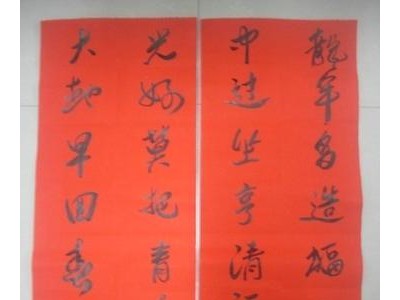 龍年多造福
中達坐亨清
光好莫把青
大地早回春